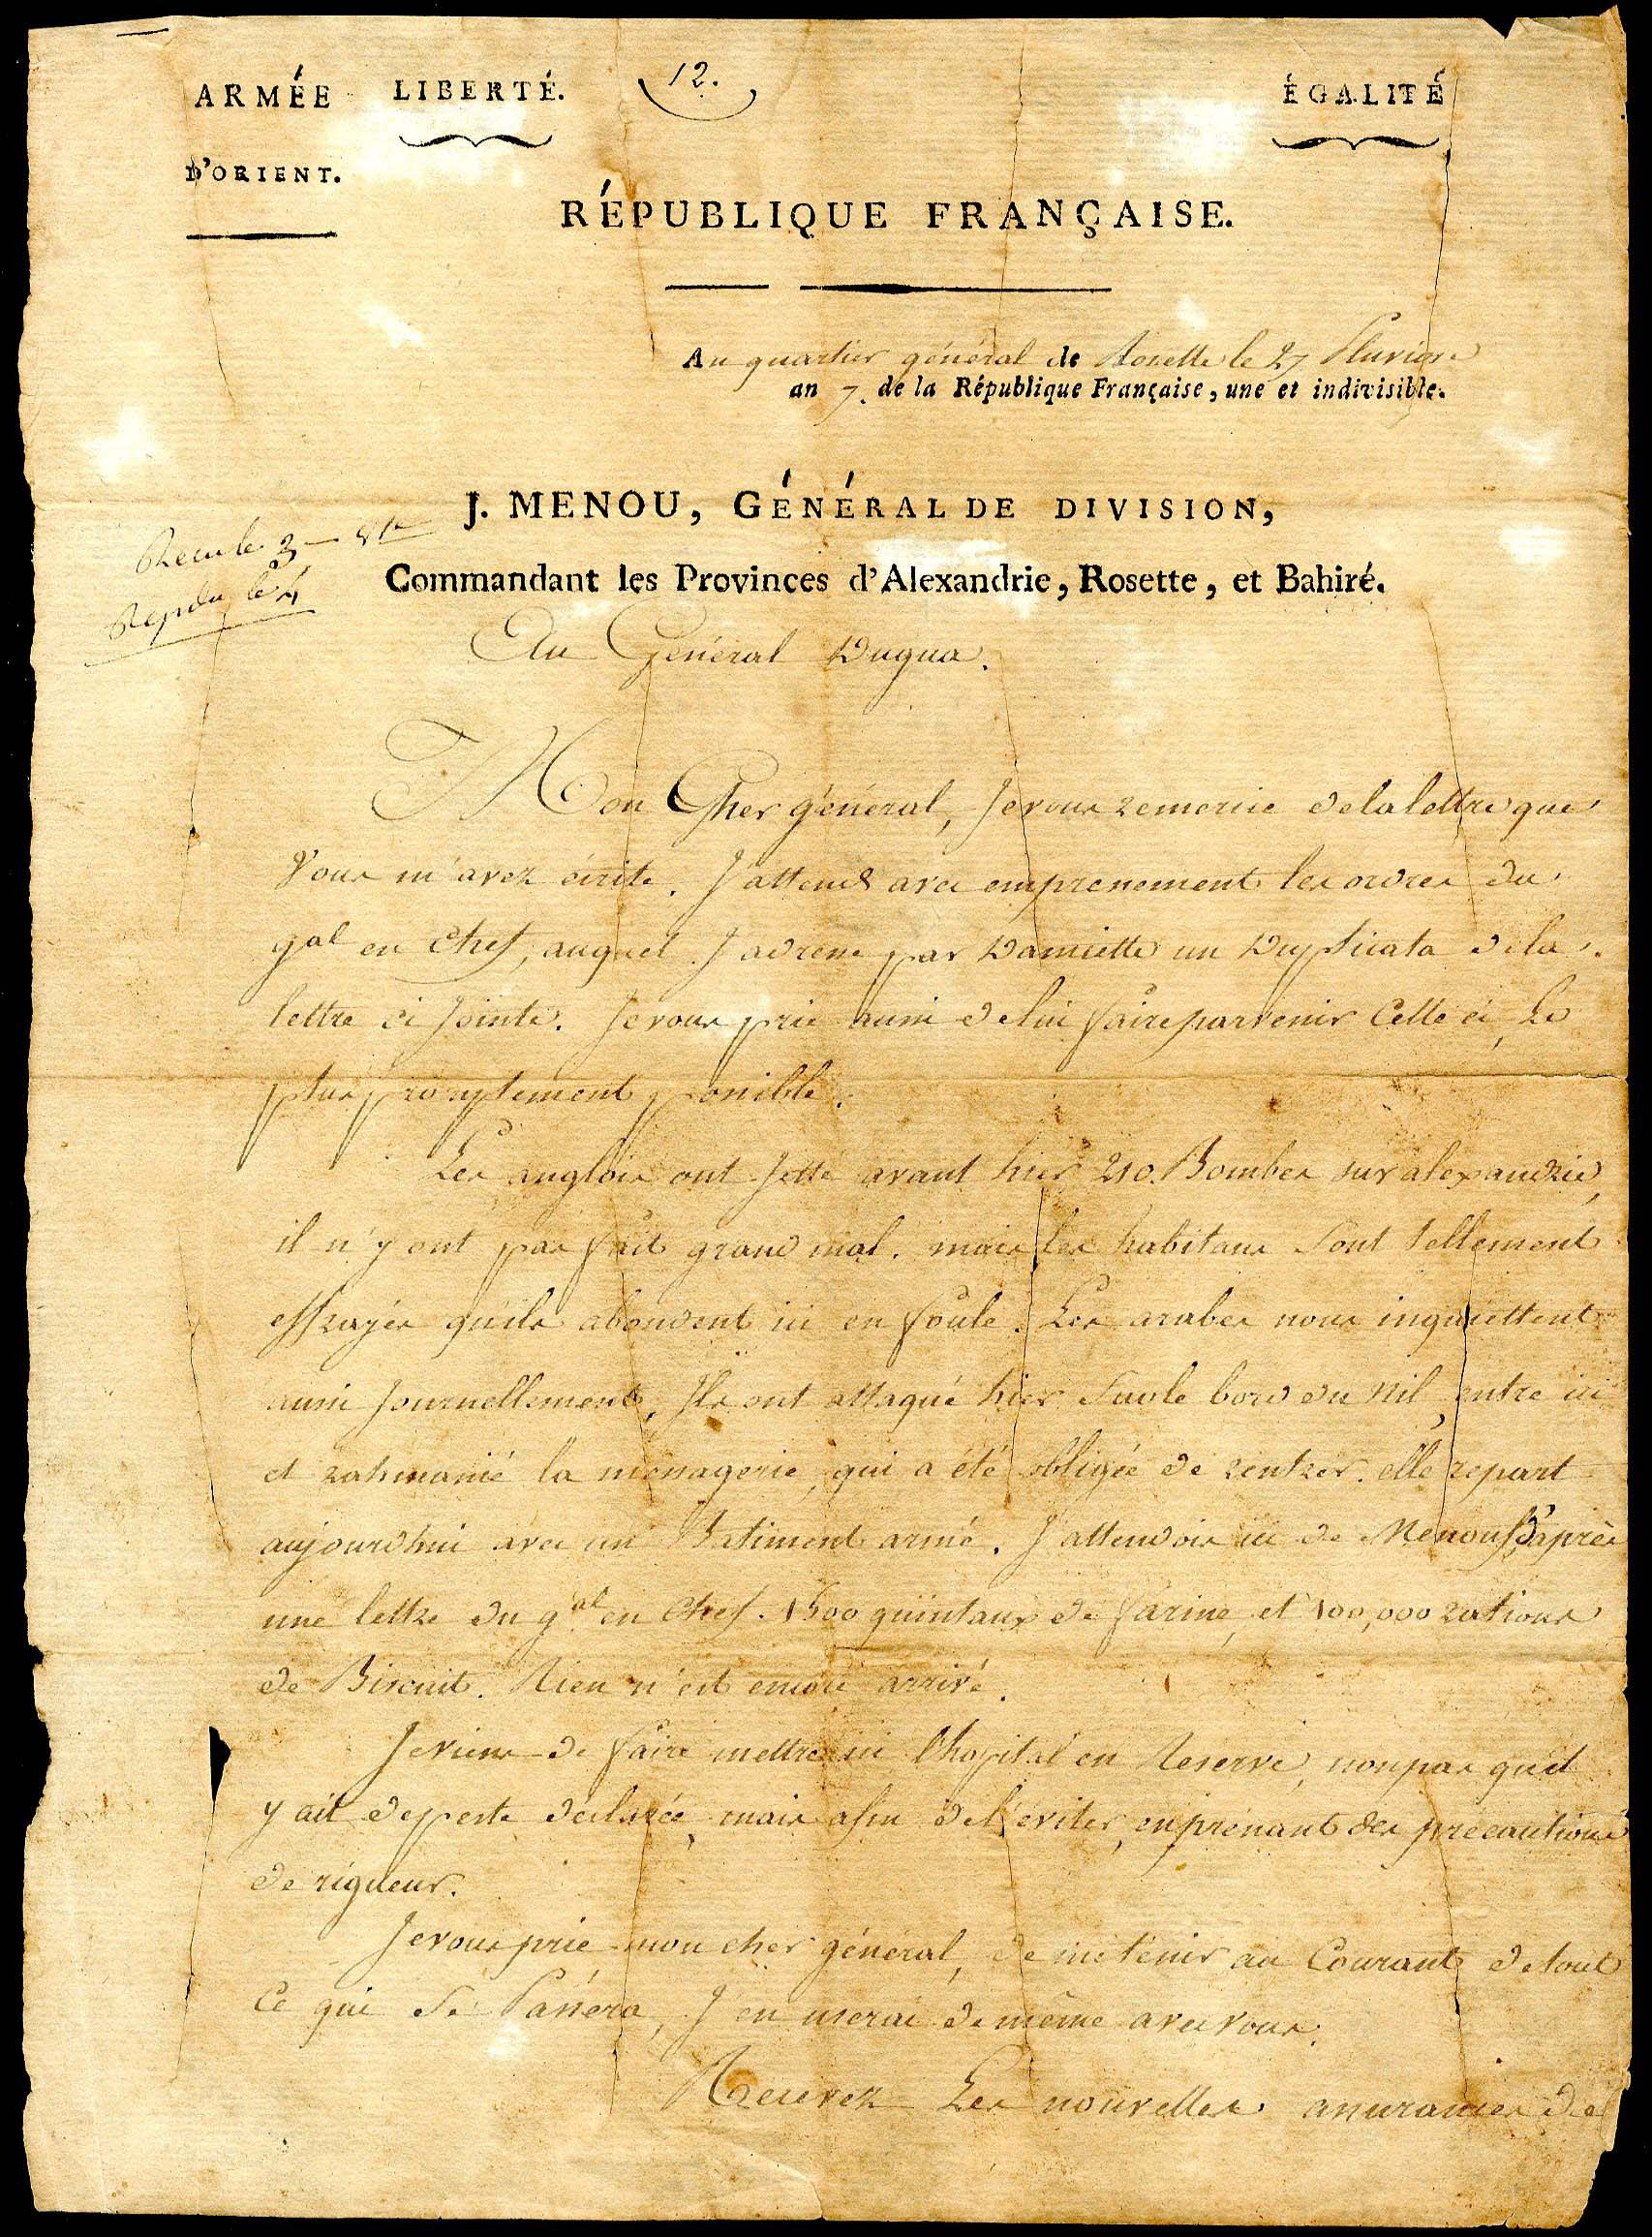 ARMÉE LIBERTÉ. 12. ÉGALITÉ
D'ORIENT.
RÉPUBLIQUE FRANÇAISE.
Au quartier général de Rosette le 27 Pluviose
an 7. de la République Française, une et indivisible.
J. MENOU, GÉNÉRAL DE DIVISION,
Commandant les Provinces d'Alexandrie, Rosette, et Bahiré.
Recu le 3
Repdu le 4
Au Général Dugua.
Mon Cher général, Je vous remercie de la lettre que
Vous m'avez écrite. J'attends avec empressement les ordres du
gal en chef, auquel J'adresse par Damiette un Duplicata de la
lettre ci Jointe. Je vous prie aussi de lui faire parvenir Celle ci, Le
plus promptement possible.
Les anglois ont Jetté avant hier 210. Bombes sur alexandrie,
il n'y ont pas fait grand mal. mais les habitans Sont tellement
effrayés qu'ils abondent ici en foule. Les arabes nous inquiettent
aussi Journellement, Ils ont attaqué hier Sur le bord du Nil, entre ici
et rahmanié la ménagerie, qui a été obligée de rentrer. elle repart
aujourdhui avec un Batiment armé. J'attendois ici de Menouf, d'après
une lettre du gal en chef. 1500 quintaux de farine, et 100,000 rations
de Biscuit. Rien n'est encore arrivé.
Je viens de faire mettre ici l'hopital en Reserve, non pas qu'il
y ait de peste déclarée, mais afin de l'éviter, en prenant des précautions
de rigueur.
Je vous prie mon cher général, de me tenir au Courant de tout
Ce qui Se Passera, J'en userai de même avec vous.
Recevez Les nouvelles assurances de